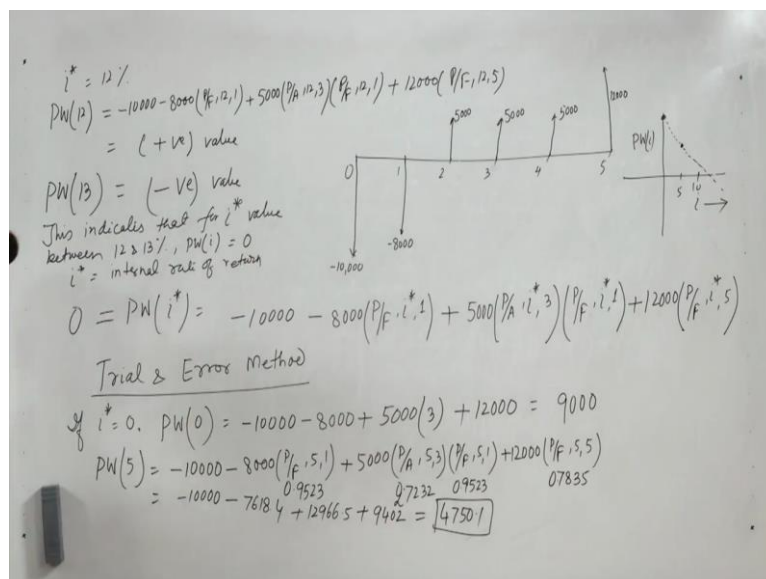 i* = 12%
PW(12) = -10000 - 8000(P/F,12,1) + 5000(P/A,12,3)(P/F,12,1) + 12000(P/F,12,5)
= (+ve) value
PW(13) = (-ve) value
This indicates that for i* value
between 12 & 13%, PW(i) = 0
i* = internal rate of return
0
1
2
3
4
5
-10,000
-8000
5000
5000
5000
12000
PW(i)
5
10
i →
0 = PW(i*) = -10000 - 8000(P/F,i*,1) + 5000(P/A,i*,3)(P/F,i*,1) + 12000(P/F,i*,5)
Trial & Error Method
If i* = 0. PW(0) = -10000 - 8000 + 5000(3) + 12000 = 9000
PW(5) = -10000 - 8000(P/F,5,1) + 5000(P/A,5,3)(P/F,5,1) + 12000(P/F,5,5)
0.9523 2.7232 0.9523 0.7835
= -10000 - 7618.4 + 12966.5 + 9402 = 4750.1